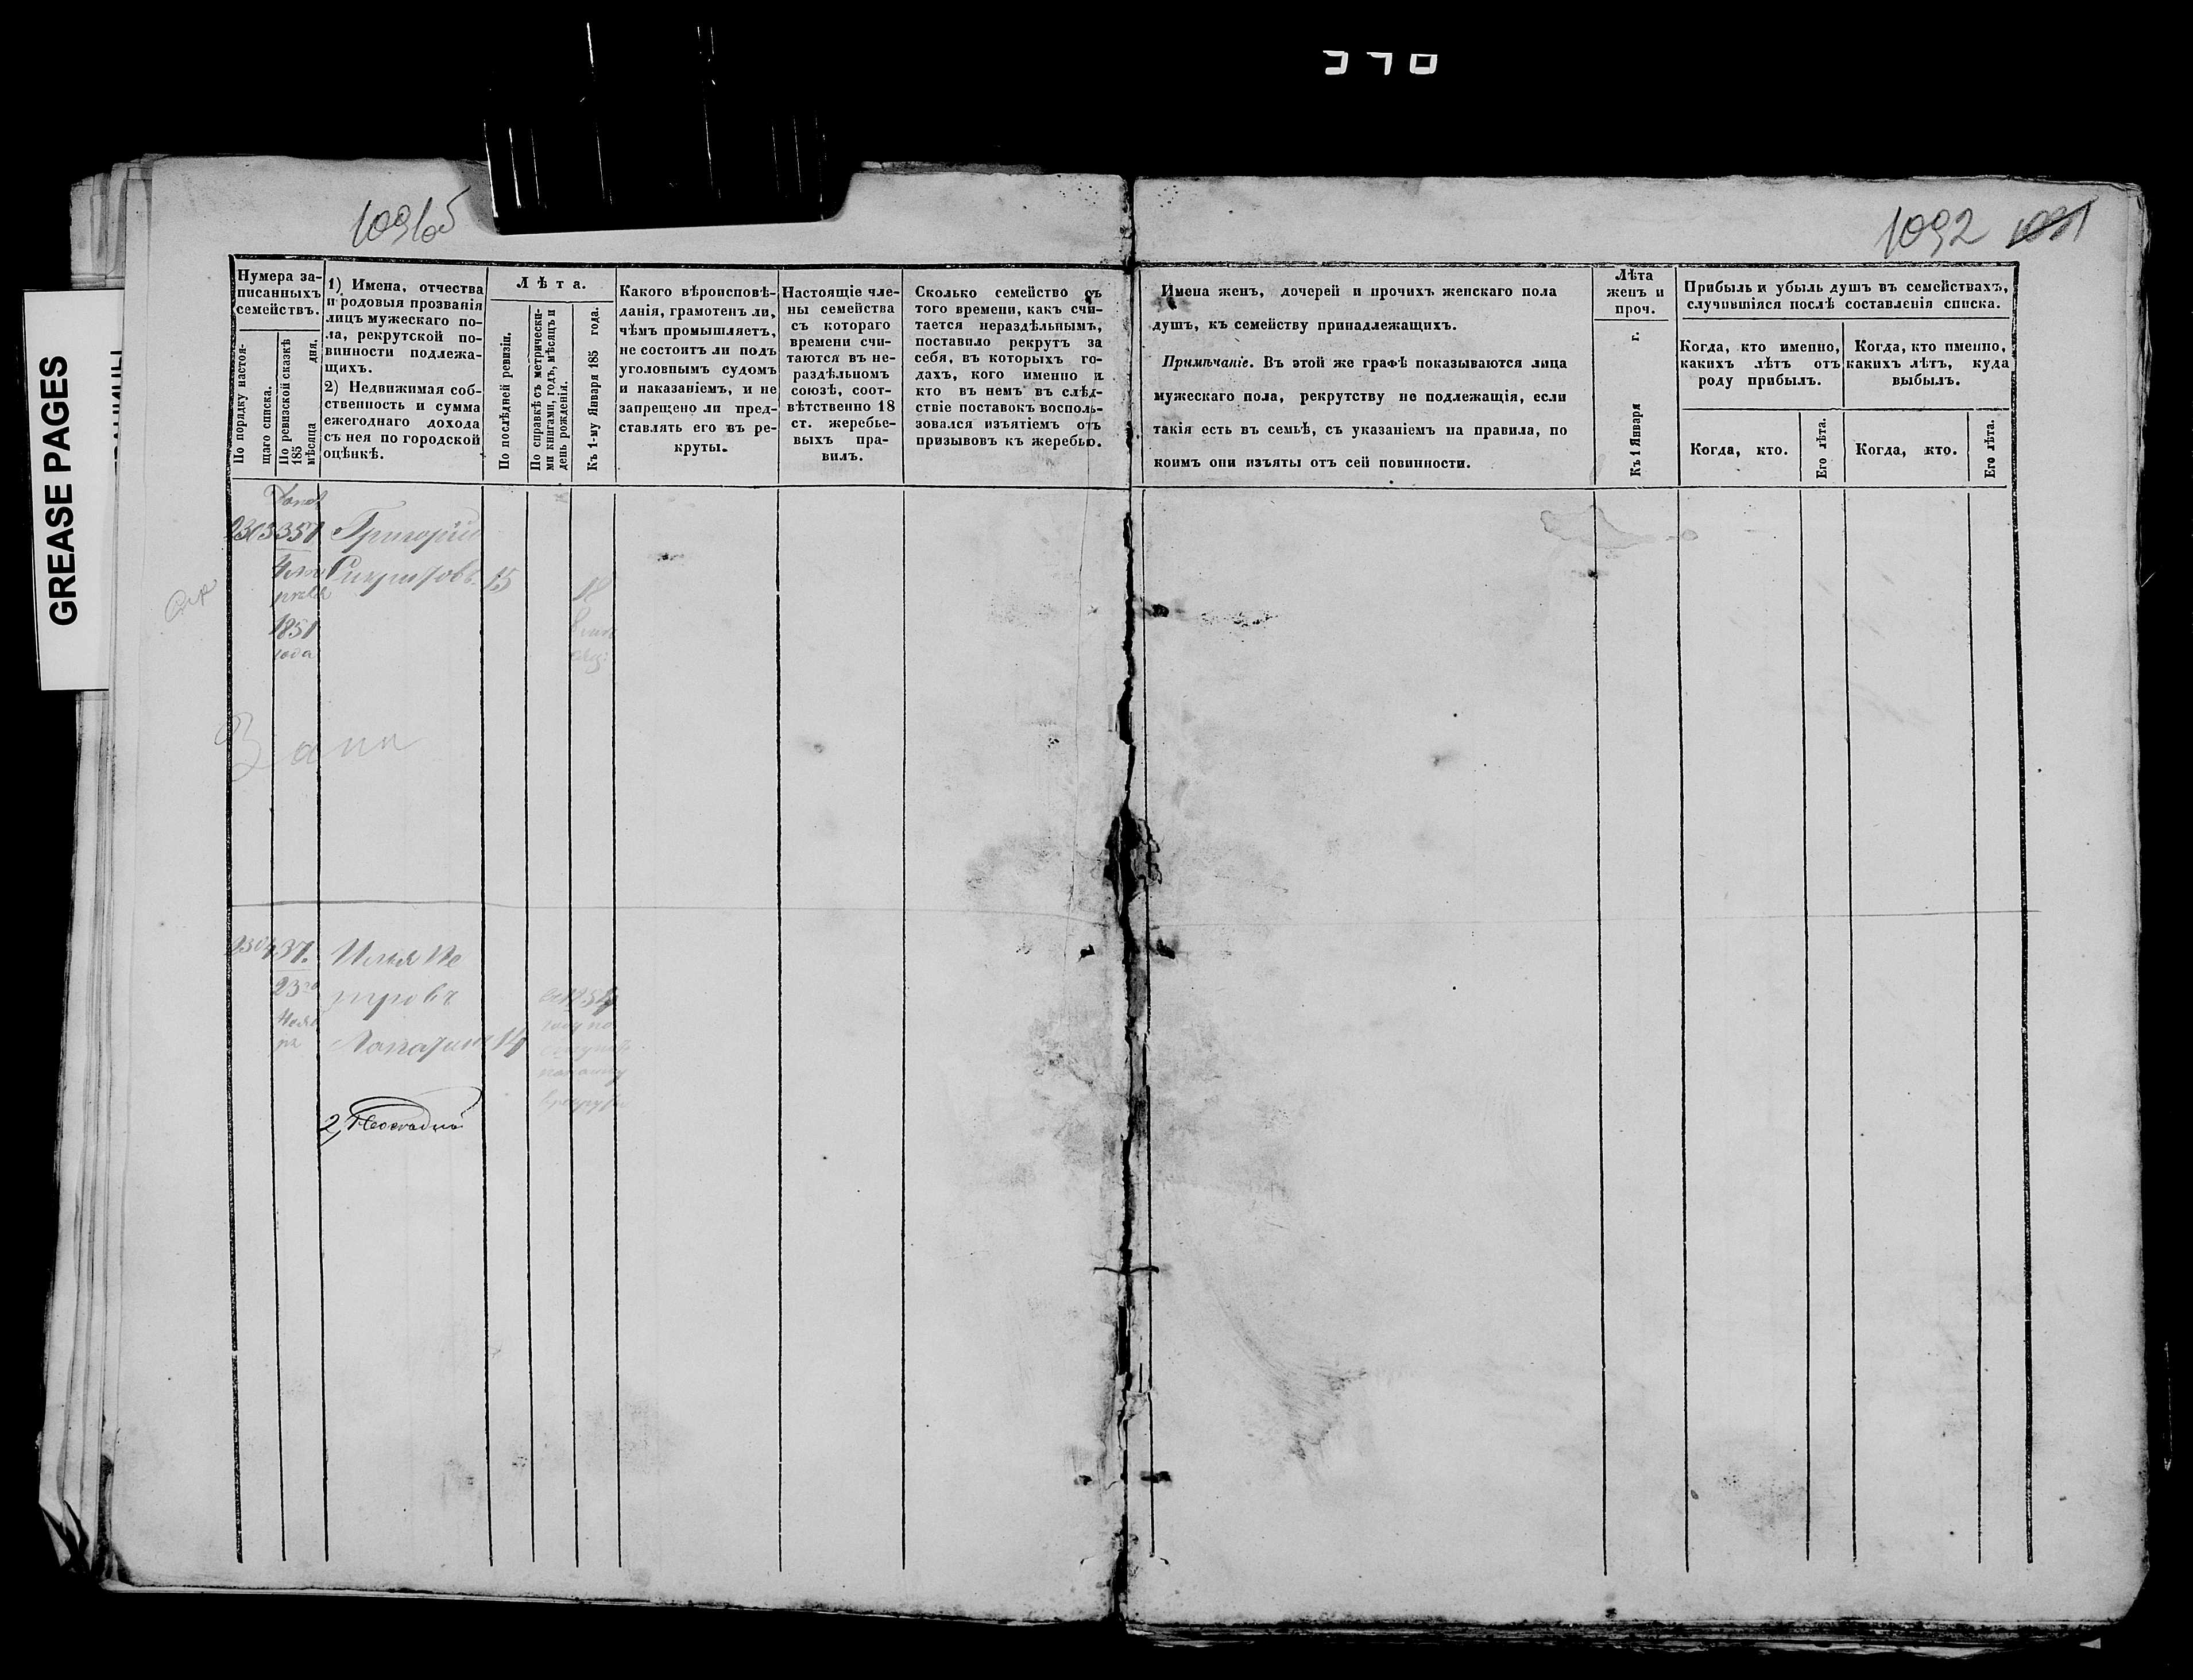 370
GREASE PAGES
1091об
1092 1091
Нумера записанныхъ семействъ.
По порядку настоящаго списка.
По ревизской сказкѣ 185 мѣсяца дня.
1) Имена, отчества и родовыя прозванія лицъ мужескаго пола, рекрутской повинности подлежащихъ.
2) Недвижимая собственность и сумма ежегоднаго дохода съ нея по городской оцѣнкѣ.
Лѣта.
По послѣдней ревизіи.
По справкѣ съ метрическими книгами, годъ, мѣсяцъ и день рожденія.
Къ 1-му Января 185 года.
Какого вѣроисповѣданія, грамотенъ ли, чѣмъ промышляетъ, не состоитъ ли подъ уголовнымъ судомъ и наказаніемъ, и не запрещено ли представлять его въ рекруты.
Настоящіе члены семейства съ котораго времени считаются въ нераздѣльномъ союзѣ, соотвѣтственно 18 ст. жеребьевыхъ правилъ.
Сколько семейство съ того времени, какъ считается нераздѣльнымъ, поставило рекрутъ за себя, въ которыхъ годахъ, кого именно и кто въ немъ въ слѣдствіе поставокъ воспользовался изъятіемъ отъ призывовъ къ жеребью.
Имена женъ, дочерей и прочихъ женскаго пола
душъ, къ семейству принадлежащихъ.
Примѣчаніе. Въ этой же графѣ показываются лица
мужескаго пола, рекрутству не подлежащія, если
такія есть въ семьѣ, съ указаніемъ на правила, по
коимъ они изъяты отъ сей повинности.
Лѣта женъ и проч.
Къ 1 Января г.
Прибыль и убыль душъ въ семействахъ, случившіяся послѣ составленія списка.
Когда, кто именно, какихъ лѣтъ отъ роду прибылъ.
Когда, кто именно, какихъ лѣтъ, куда выбылъ.
Когда, кто.
Его лѣта.
Когда, кто.
Его лѣта.
2303 357 Григорій
15 18
1851
года
2304 37. Илья Пе
тровъ
Лопатинъ 14
2,